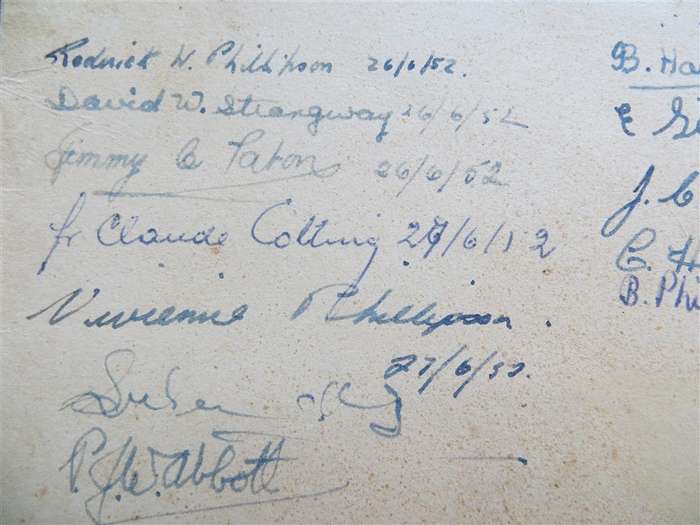 Roderick W. Phillipson 26/6/52.
David W. Strangway 26/6/52
Jimmy C Paton 26/6/52
fr Claude Colling 27/6/52
Vivienne Phillipson.
27/6/52.
P.J.W. Abbott
B. Ha
E
J. C
C. H
B. Phi